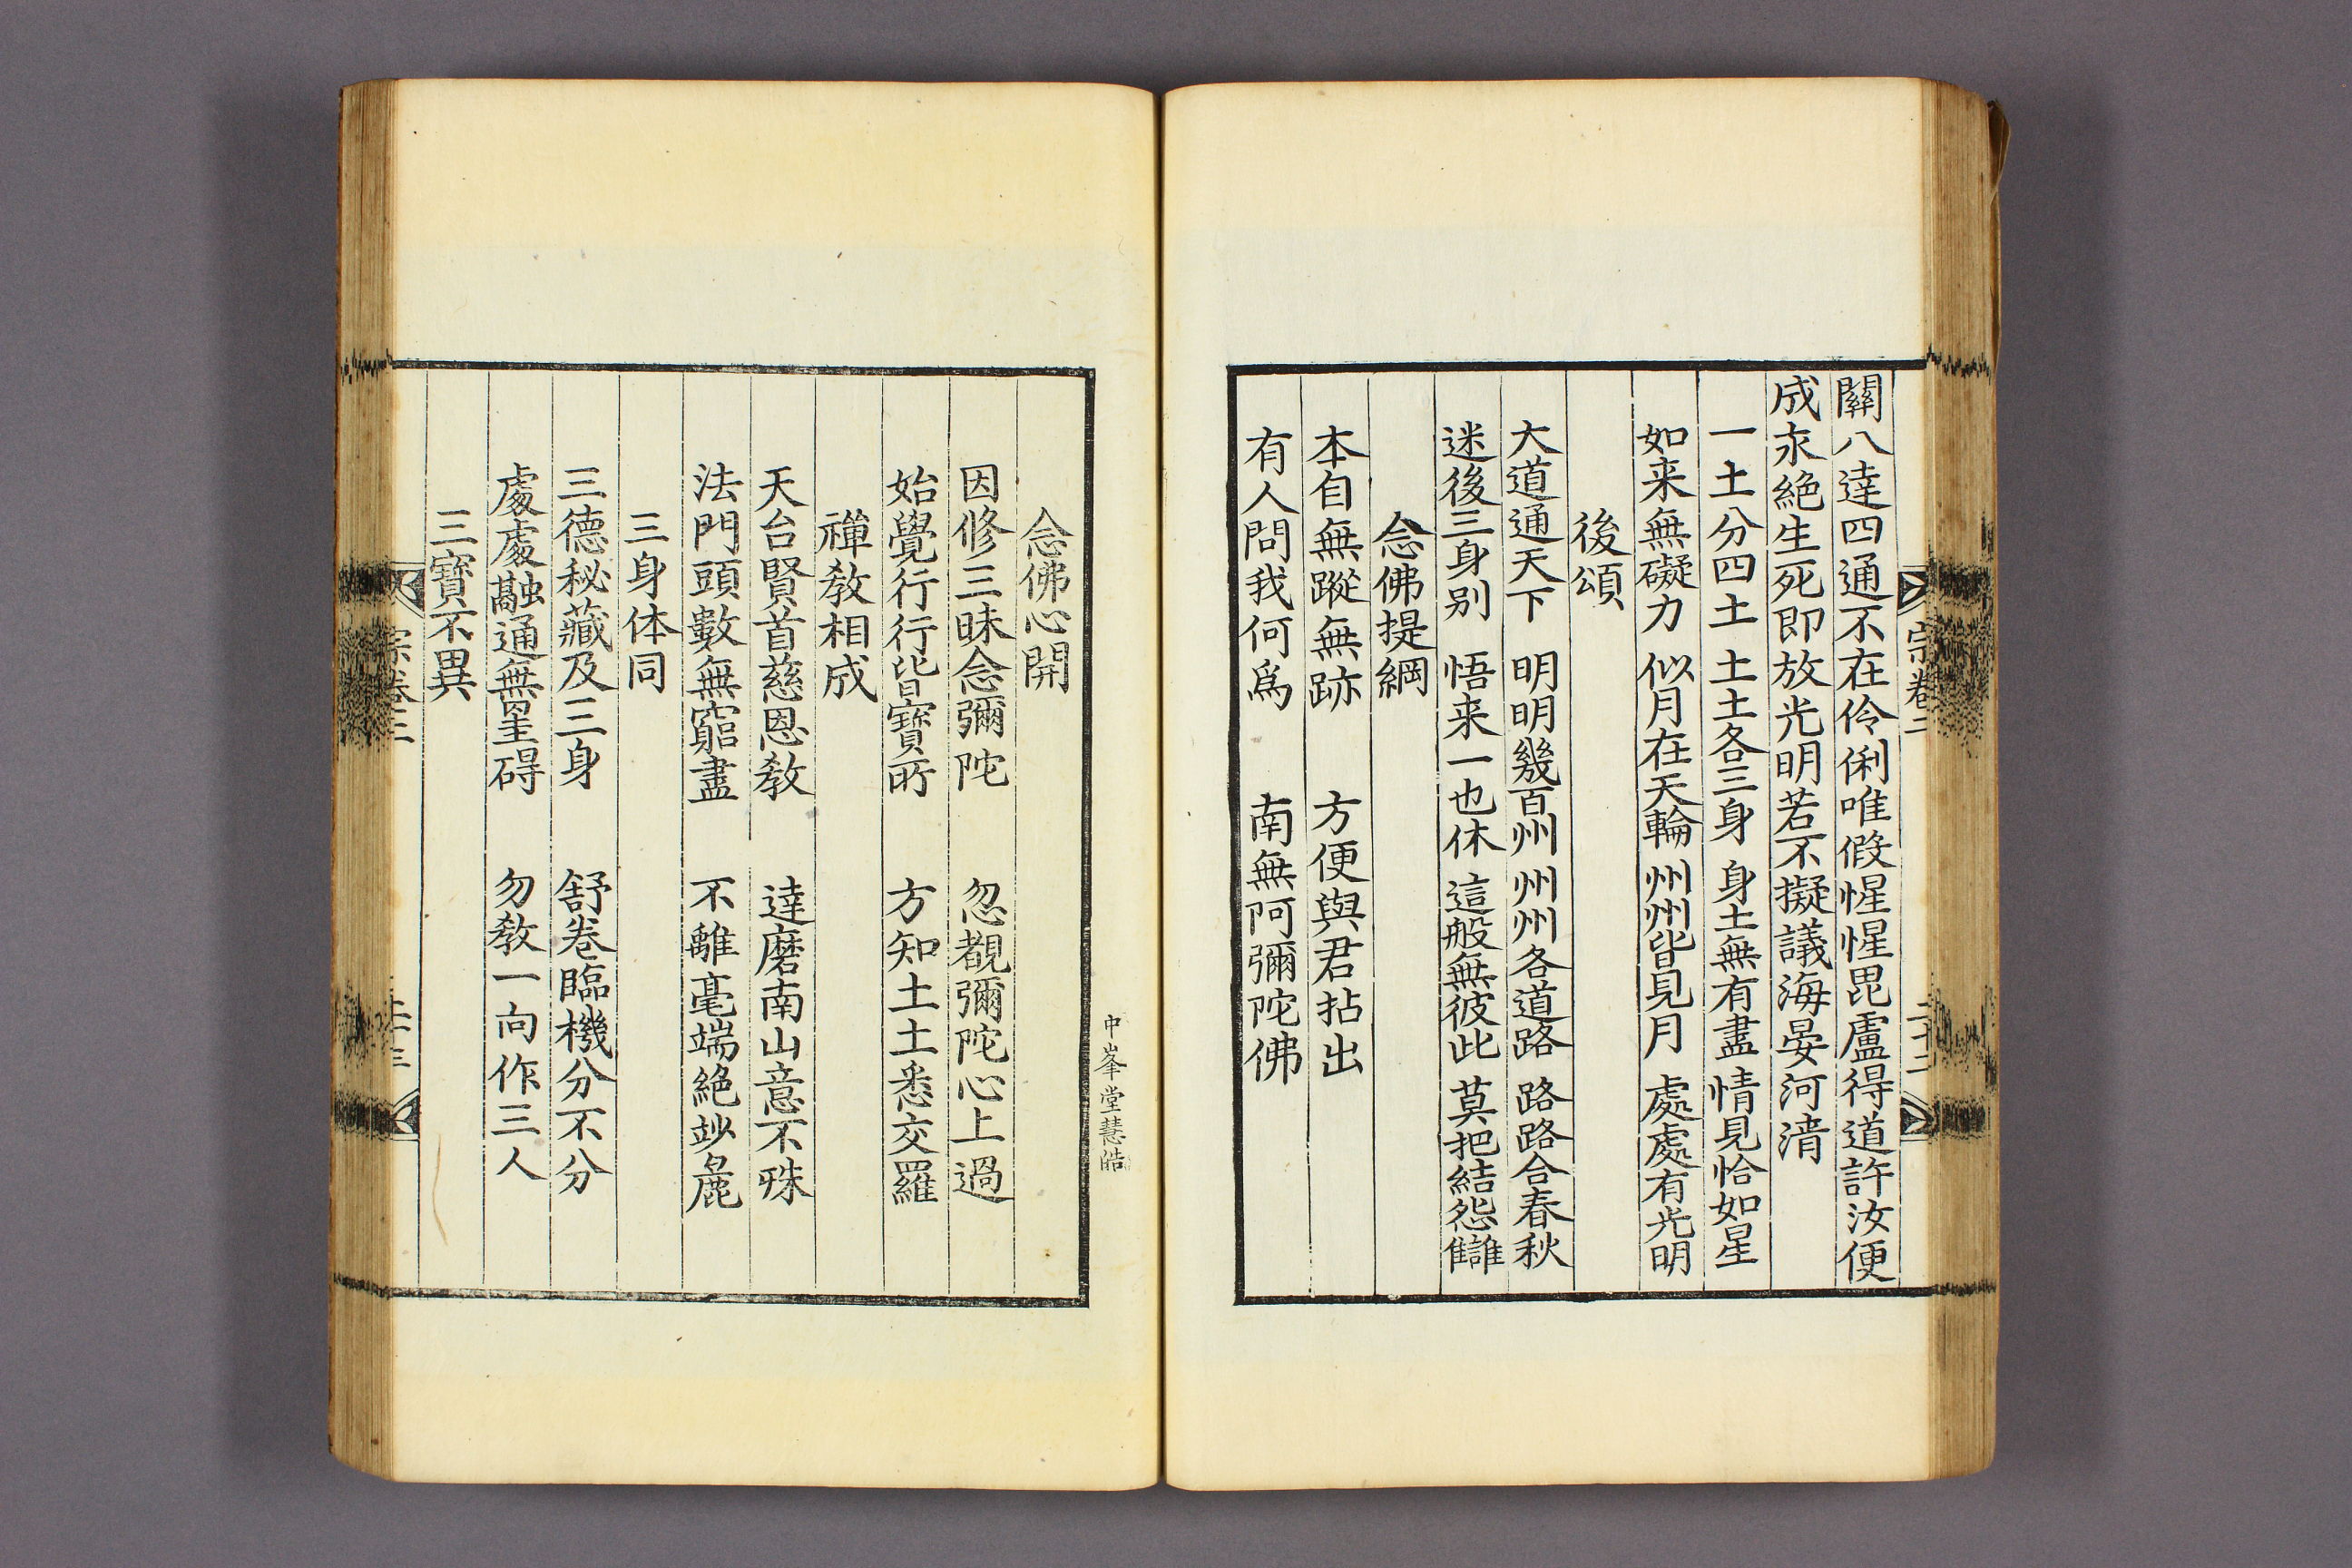 關八達四通不在伶俐唯假惺惺毘盧得道許汝便
成永絕生死即放光明若不擬議海晏河淸
一土分四土 土土各三身 身土無有盡 情見恰如星
如来無礙力 似月在天輪 州州皆見月 處處有光明
後頌
大道通天下 明明幾百州 州州各道路 路路合春秋
迷後三身別 悟来一也休 這般無彼此 莫把結怨讎
念佛提綱
本自無蹤無跡 方便與君拈出
有人問我何爲 南無阿彌陀佛
中峯堂慧皓
念佛心開
因修三昧念彌陀 忽覩彌陀心上過
始覺行行皆寶所 方知土土悉交羅
禪敎相成
天台賢首慈恩敎 達磨南山意不殊
法門頭數無窮盡 不離毫端絕妙麁
三身体同
三德秘藏及三身 舒卷臨機分不分
處處融通無罣碍 勿敎一向作三人
三寶不異
宗卷三